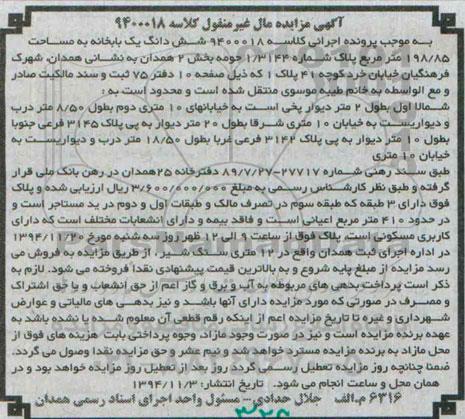 آگهی مزایده مال غیر منقول کلاسه ۹۴۰۰۰۱۸
به موجب پرونده اجرائی کلاسه ۹۴۰۰۰۱۸ شش دانگ یک بابخانه به مساحت
۱۹۸/۸۵ متر مربع پلاک شماره ۱/۳۱۴۴ حومه بخش ۲ همدان به نشانی همدان، شهرک
فرهنگیان خیابان خردکوچه ۴۱ پلاک ۱ که ذیل صفحه ۱۰ دفتر ۷۵ ثبت و سند مالکیت صادر
و مع الواسطه به خانم طیبه موسوی منتقل شده است و محدود است به :
شمالا اول بطول ۲ متر دیوار پخی است به خیابانهای ۱۰ متری دوم بطول ۸/۵۰ متر درب
و دیواریست به خیابان ۱۰ متری شرقا بطول ۲۰ متر دیوار به پی پلاک ۳۱۴۵ فرعی جنوبا
بطول ۱۰ متر دیوار به پی پلاک ۳۱۴۲ فرعی غربا بطول ۱۸/۵۰ متر درب و دیواریست به
خیابان ۱۰ متری
طبق سند رهنی شماره ۲۷۷۱۷-۸۹/۷/۲۷ دفترخانه ۲۵همدان در رهن بانک ملی قرار
گرفته و طبق نظر کارشناس رسمی به مبلغ ۳/۶۰۰/۰۰۰/۰۰۰ ریال ارزیابی شده و پلاک
فوق دارای ۳ طبقه که طبقه سوم در تصرف مالک و طبقات اول و دوم در ید مستاجر است و
در حدود ۴۱۰ متر مربع اعیانی است و فاقد بیمه و دارای انشعابات مختلف است که دارای
کاربری مسکونی است. پلاک فوق از ساعت ۹ الی ۱۲ ظهر روز سه شنبه مورخ ۱۳۹۴/۱۱/۲۰
در اداره اجرای ثبت همدان واقع در ۱۲ متری سنگ شیر ، از طریق مزایده به فروش می
رسد مزایده از مبلغ پایه شروع و به بالاترین قیمت پیشنهادی نقدا فروخته می شود. لازم به
ذکر است پرداخت بدهی های مربوطه به آب و برق و گاز اعم از حق انشعاب و یا حق اشتراک
و مصرف در صورتی که مورد مزایده دارای آنها باشد و نیز بدهی های مالیاتی و عوارض
شهرداری و غیره تا تاریخ مزایده اعم از اینکه رقم قطعی آن معلوم شده یا نشده باشد به
عهده برنده مزایده است و نیز در صورت وجود مازاد، وجوه پرداختی بابت هزینه های فوق از
محل مازاد به برنده مزایده مسترد خواهد شد و نیم عشر و حق مزایده نقدا وصول می گردد.
ضمنا چنانچه روز مزایده تعطیل رسمی گردد روز بعد از تعطیل روز مزایده خواهد بود و در
همان محل و ساعت انجام می شود. تاریخ انتشار: ۱۳۹۴/۱۱/۳
۶۳۱۶ م.الف جلال حدادی– مسئول واحد اجرای اسناد رسمی همدان